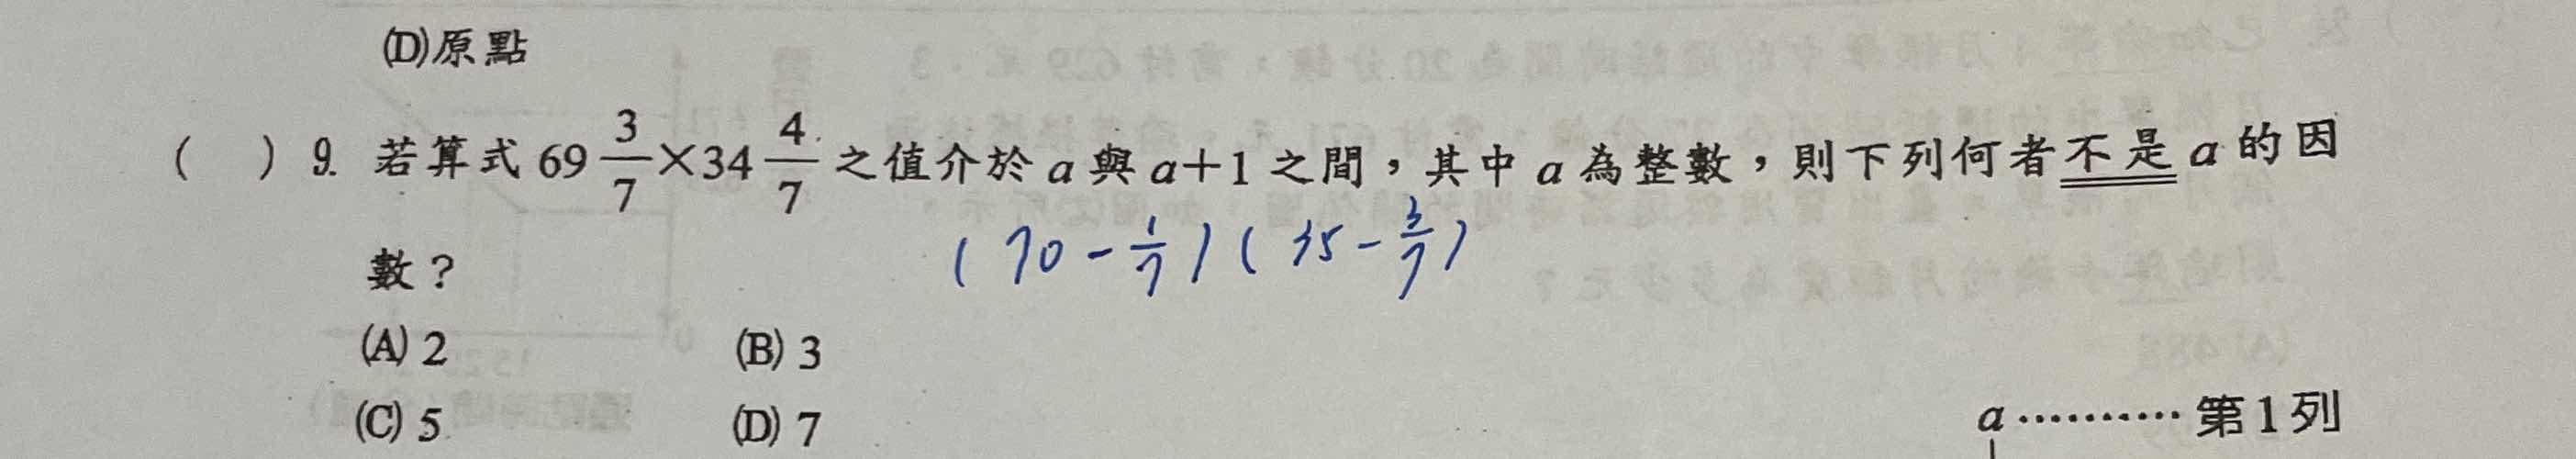 (D)原點
(  ) 9. 若算式 69 3/7 × 34 4/7 之值介於 a 與 a+1 之間，其中 a 為整數，則下列何者不是 a 的因
(70 - 1/7)(35 - 3/7)
數？
(A) 2 (B) 3
(C) 5 (D) 7
a ………… 第1列